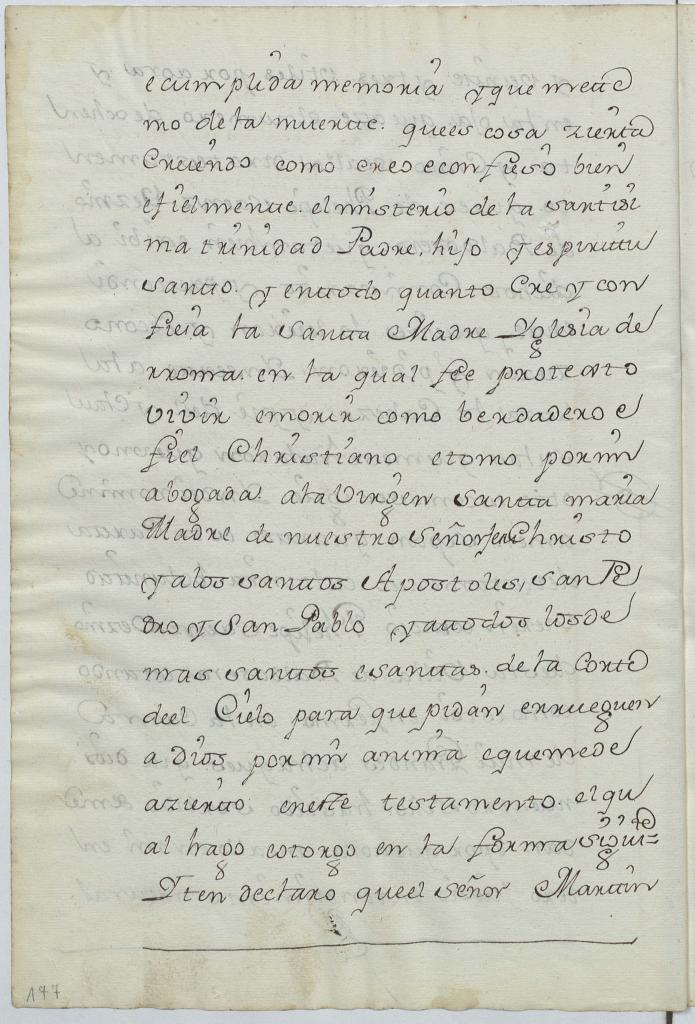 e cumplida memoria y que me tte
mo de la muerte. que es cosa zierta
Creiendo como creo e confieso bien
e fielmente. el misterio de la santisi
ma trinidad Padre, hijo y espirittu
santto. y en ttodo quanto Cre y con
fiesa la santta Madre Yglesia de
rroma. en la qual fee protesto
vivir e morir como berdadero e
fiel Christiano e tomo por mi
abogada. a la Virgen santta maria
Madre de nuestro señor Jesu Christo
y a los santtos Apostoles, san Pe
dro y San Pablo y a ttodos los de
mas santtos e santtas. de la Corte
deel Cielo para que pidan e rrueguen
a Dios por mi anima e que me de
azierto en este testamento. el qu
al hago e otorgo en la forma siguite=
Yten declaro que el señor Marttin
177